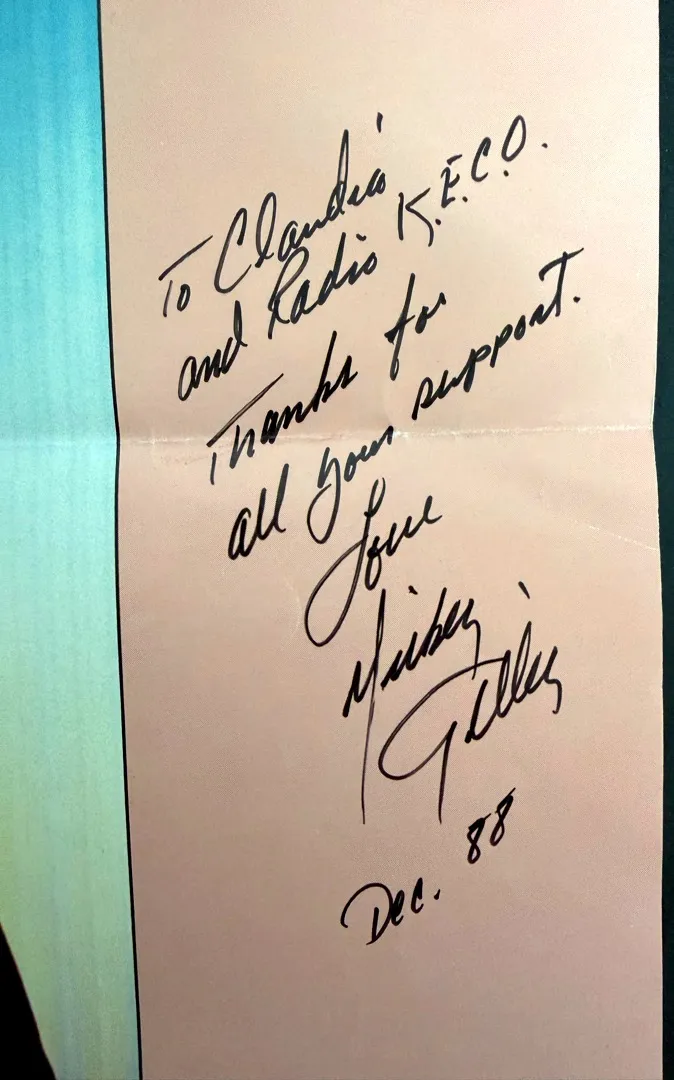 To Claudio
and Radio K.E.C.O.
Thanks for
all your support.
Love
Mickey
Gilley
Dec. 88